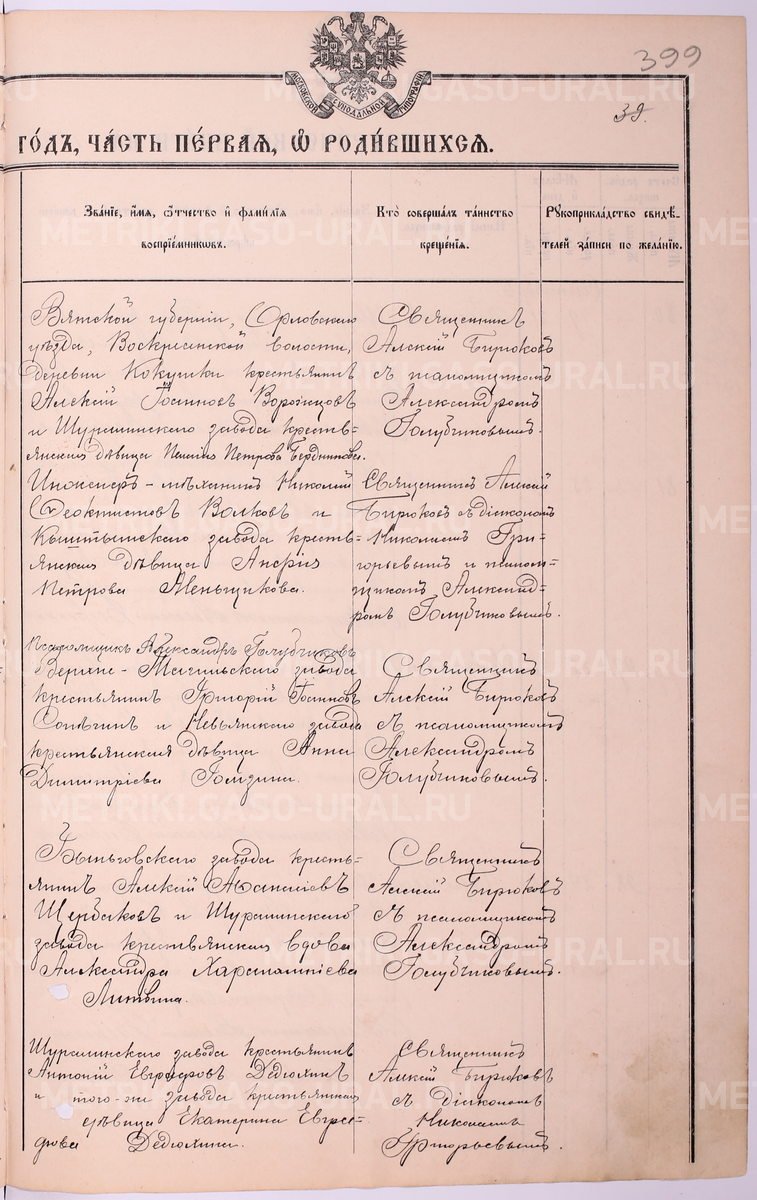 399
39.
МОСКОВСКОЙ СѴНОДАЛЬНОЙ ТИПОГРАФІИ
ГО́ДЪ, ЧА́СТЬ ПЕ́РВАЯ, Ѡ҆ РОДИ́ВШИХСЯ.
Зва́ніе, и҆́мя, ѻ҆́тчество и҆ фами́лія
воспріе́мникѡвъ.
Кто̀ соверша́лъ та́инство
креще́нія.
Рꙋкоприкла́дство свидѣ́-
телей за́писи по жела́нію.
Вятской губерніи, Орловскаго
уѣзда, Воскресенской волости,
деревни Кокушки крестьянинъ
Алексій Іоанновъ Ворожцовъ
и Шуралинскаго завода кресть-
янская дѣвица Пелагія Петрова Бердникова.
Священникъ
Алексій Бирюковъ
съ псаломщикомъ
Александромъ
Голубчиковымъ.
Инженеръ-механикъ Николай
Ѳеоктистовъ Волковъ и
Кыштымскаго завода кресть-
янская дѣвица
Петрова Меньщикова.
Священникъ Алексій
Бирюковъ съ діакономъ
Николаемъ Гри-
горьевымъ и псалом-
щикомъ Александ-
ромъ Голубчиковымъ.
Псаломщикъ Александръ Голубчиковъ
Верхне-Тагильскаго завода
крестьянинъ Григорій Іоанновъ
и Невьянскаго завода
крестьянская дѣвица Анна
Димитріева
Священникъ
Алексій Бирюковъ
съ псаломщикомъ
Александромъ
Голубчиковымъ.
Быньговскаго завода кресть-
янинъ Алексій Аѳанасіевъ
Щербаковъ и Шуралинскаго
завода крестьянская вдова
Александра Харалампіева
Литвина.
Священникъ
Алексій Бирюковъ
съ псаломщикомъ
Александромъ
Голубчиковымъ.
Шуралинскаго завода крестьянинъ
Антоній Евграфовъ Дедюхинъ
и того-же завода крестьянская
дѣвица Екатерина Евгра-
фова Дедюхина.
Священникъ
Алексій Бирюковъ
съ діакономъ
Николаемъ
Григорьевымъ.
METRIKI.GASO-URAL.RU